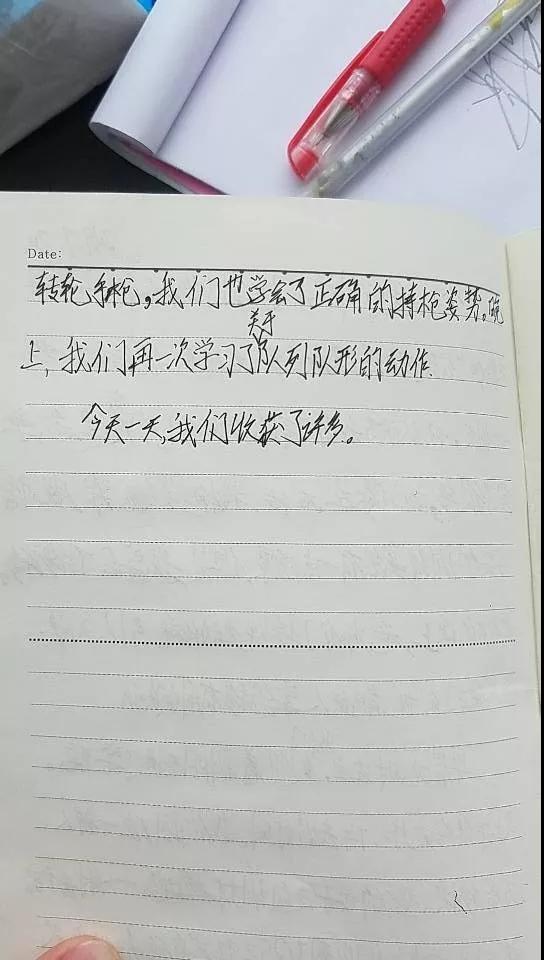 Date:
转轮手枪,我们也学会了正确的持枪姿势。晚
关于
上,我们再一次学习了队列队形的动作.
今天一天,我们收获了许多。